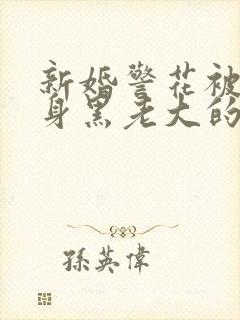 新婚警花被
身黑老大的
孫英偉